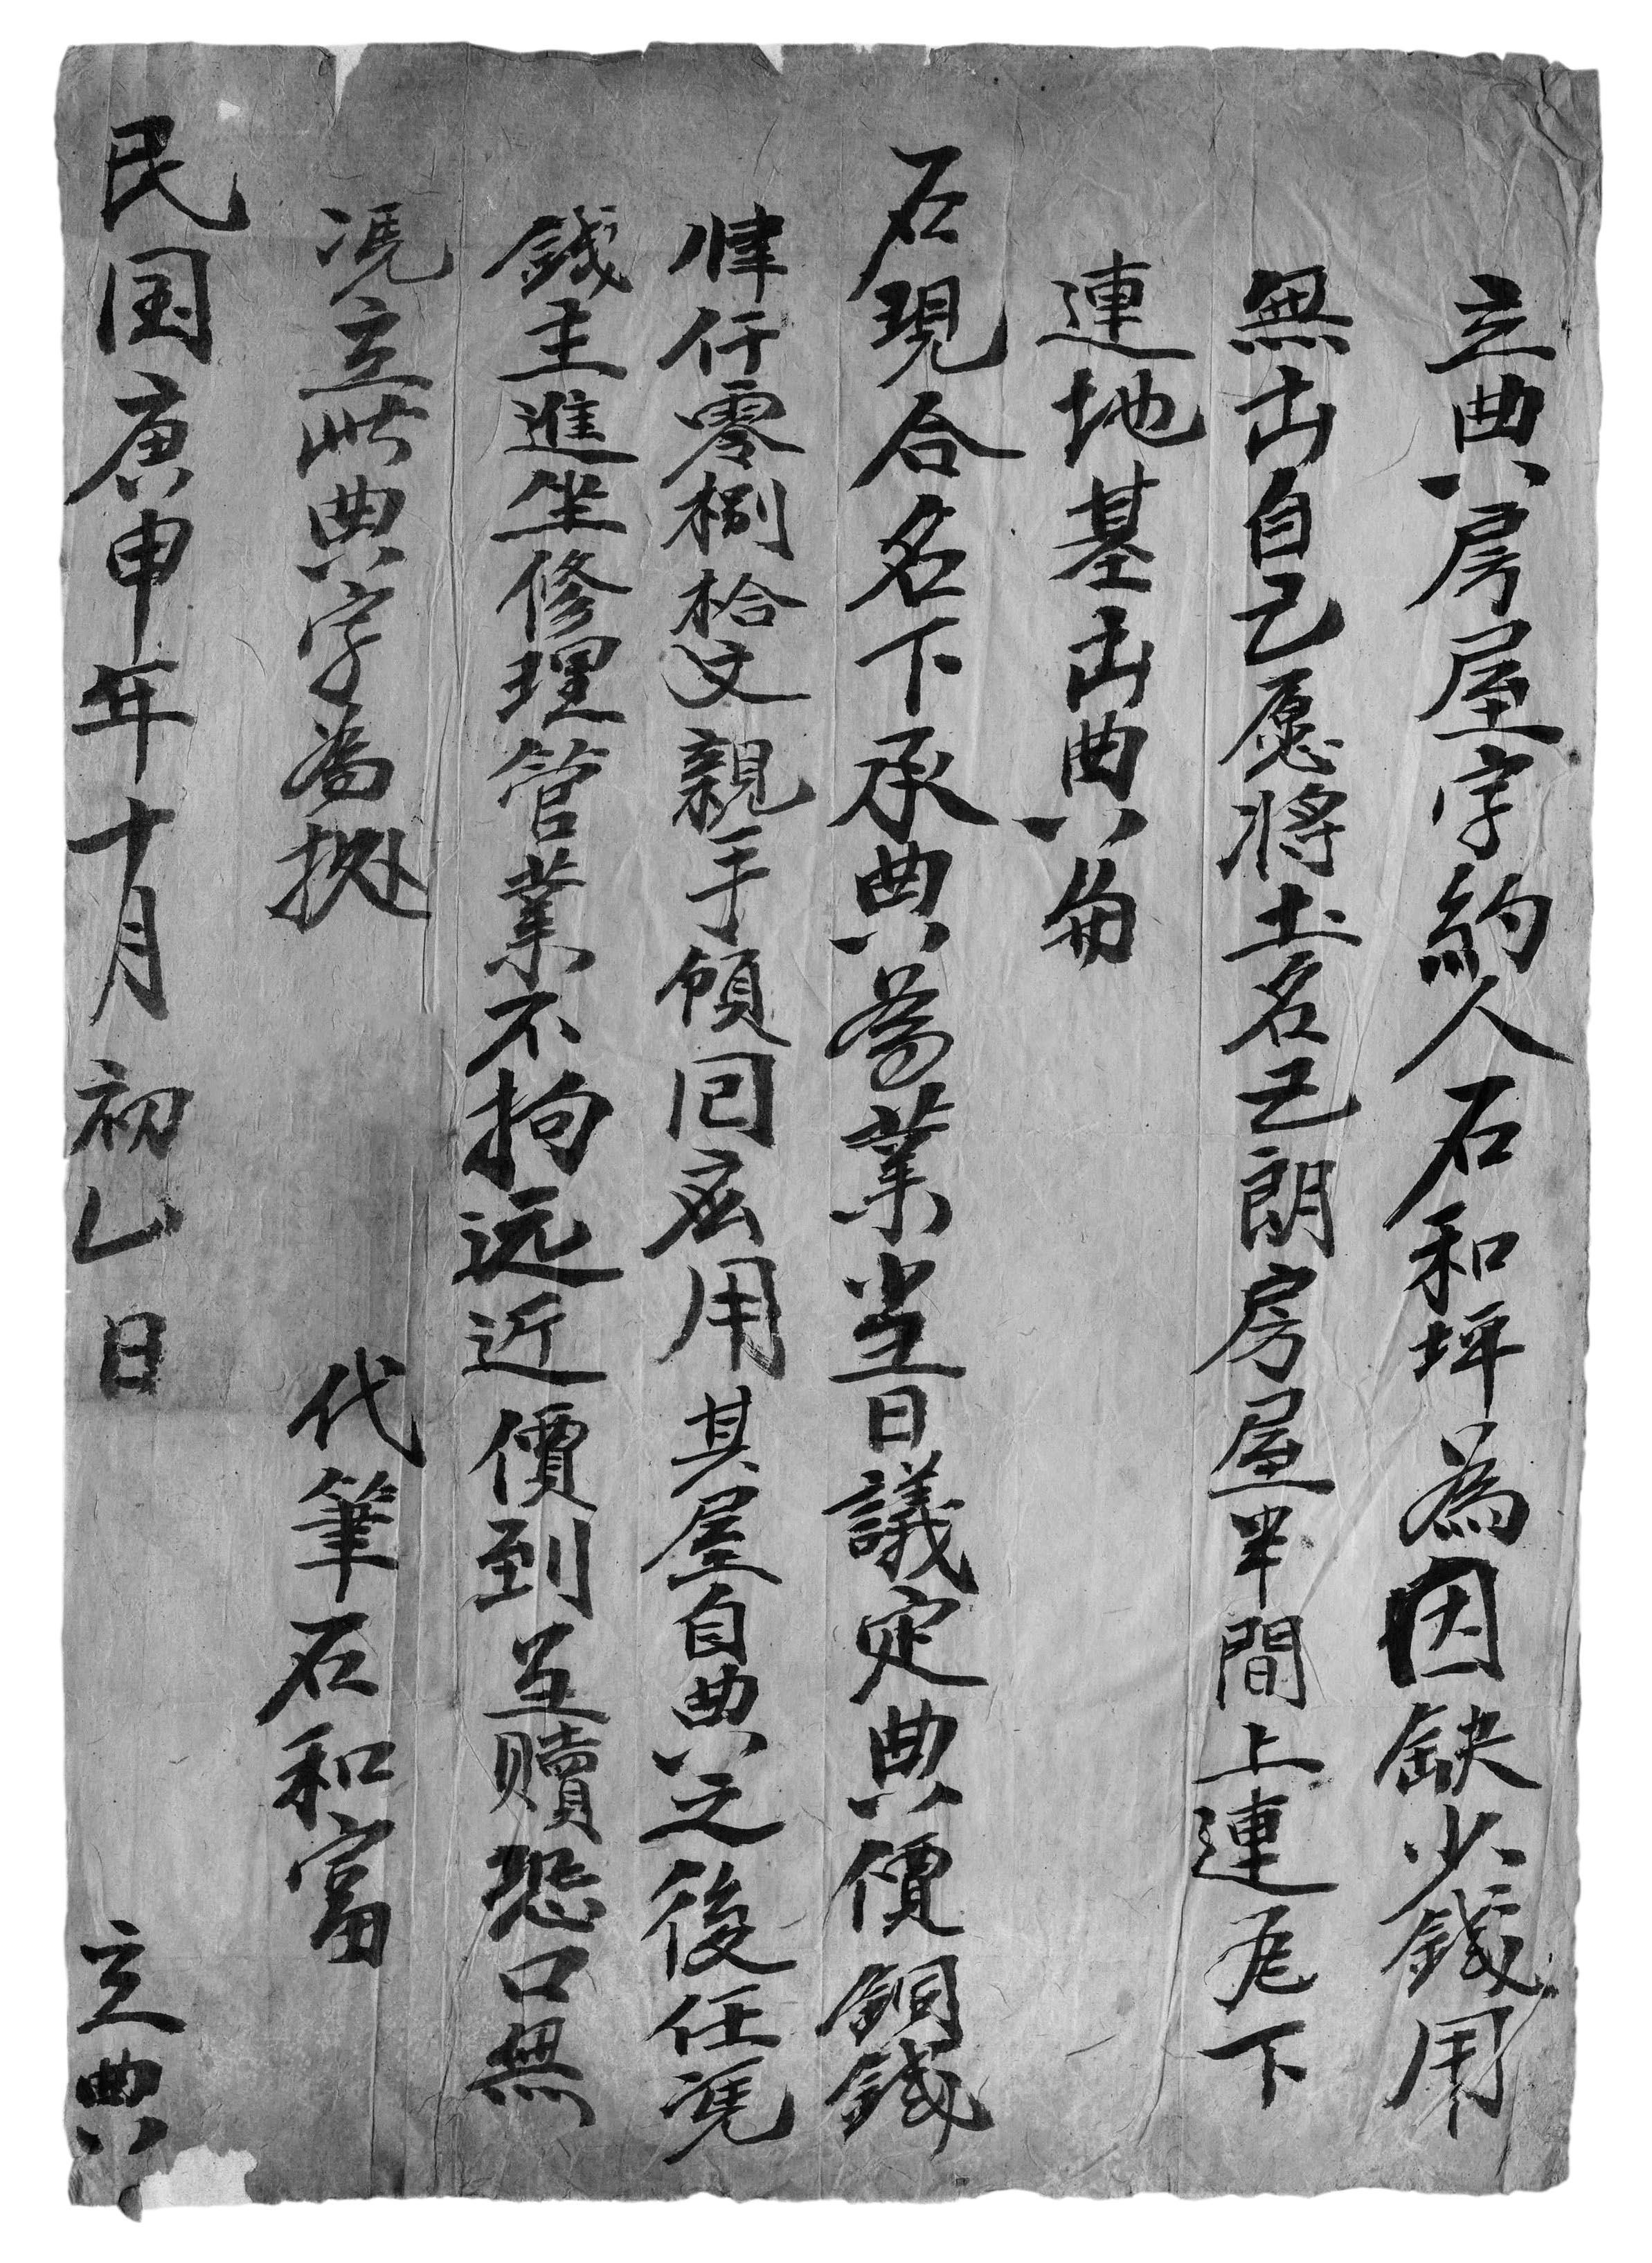 立典房屋字約人石和坪為因缺少錢用
無出自己愿將土名己朗房屋半間上連瓦下
連地基出典與
石現合名下承典為業当日議定典價銅錢
肆仟零捌拾文親手領回應用其屋自典之後任凴
錢主進坐修理管業不拘远近價到並贖恐口無
凴立此典字為㨿
代筆石和富
民国庚申年十月初乚日
立典